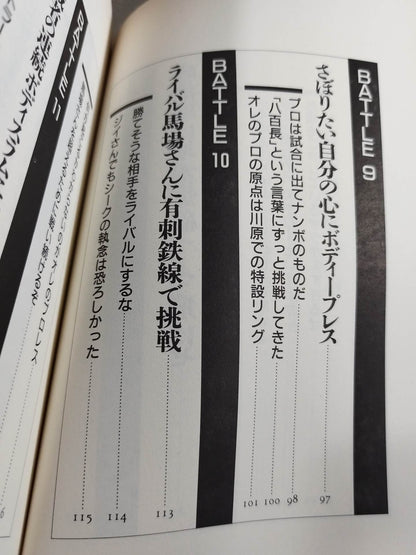 BATTLE 9
さぼりたい自分の心にボディープレス 97
プロは試合に出てナンボのものだ 98
「八百長」という言葉にずっと挑戦してきた 100
オレのプロの原点は川原での特設リング 101
BATTLE 10
ライバル馬場さんに有刺鉄線で挑戦 113
勝てそうな相手をライバルにするな 114
ジイさんでもシークの執念は恐ろしかった 115
BATTLE 11